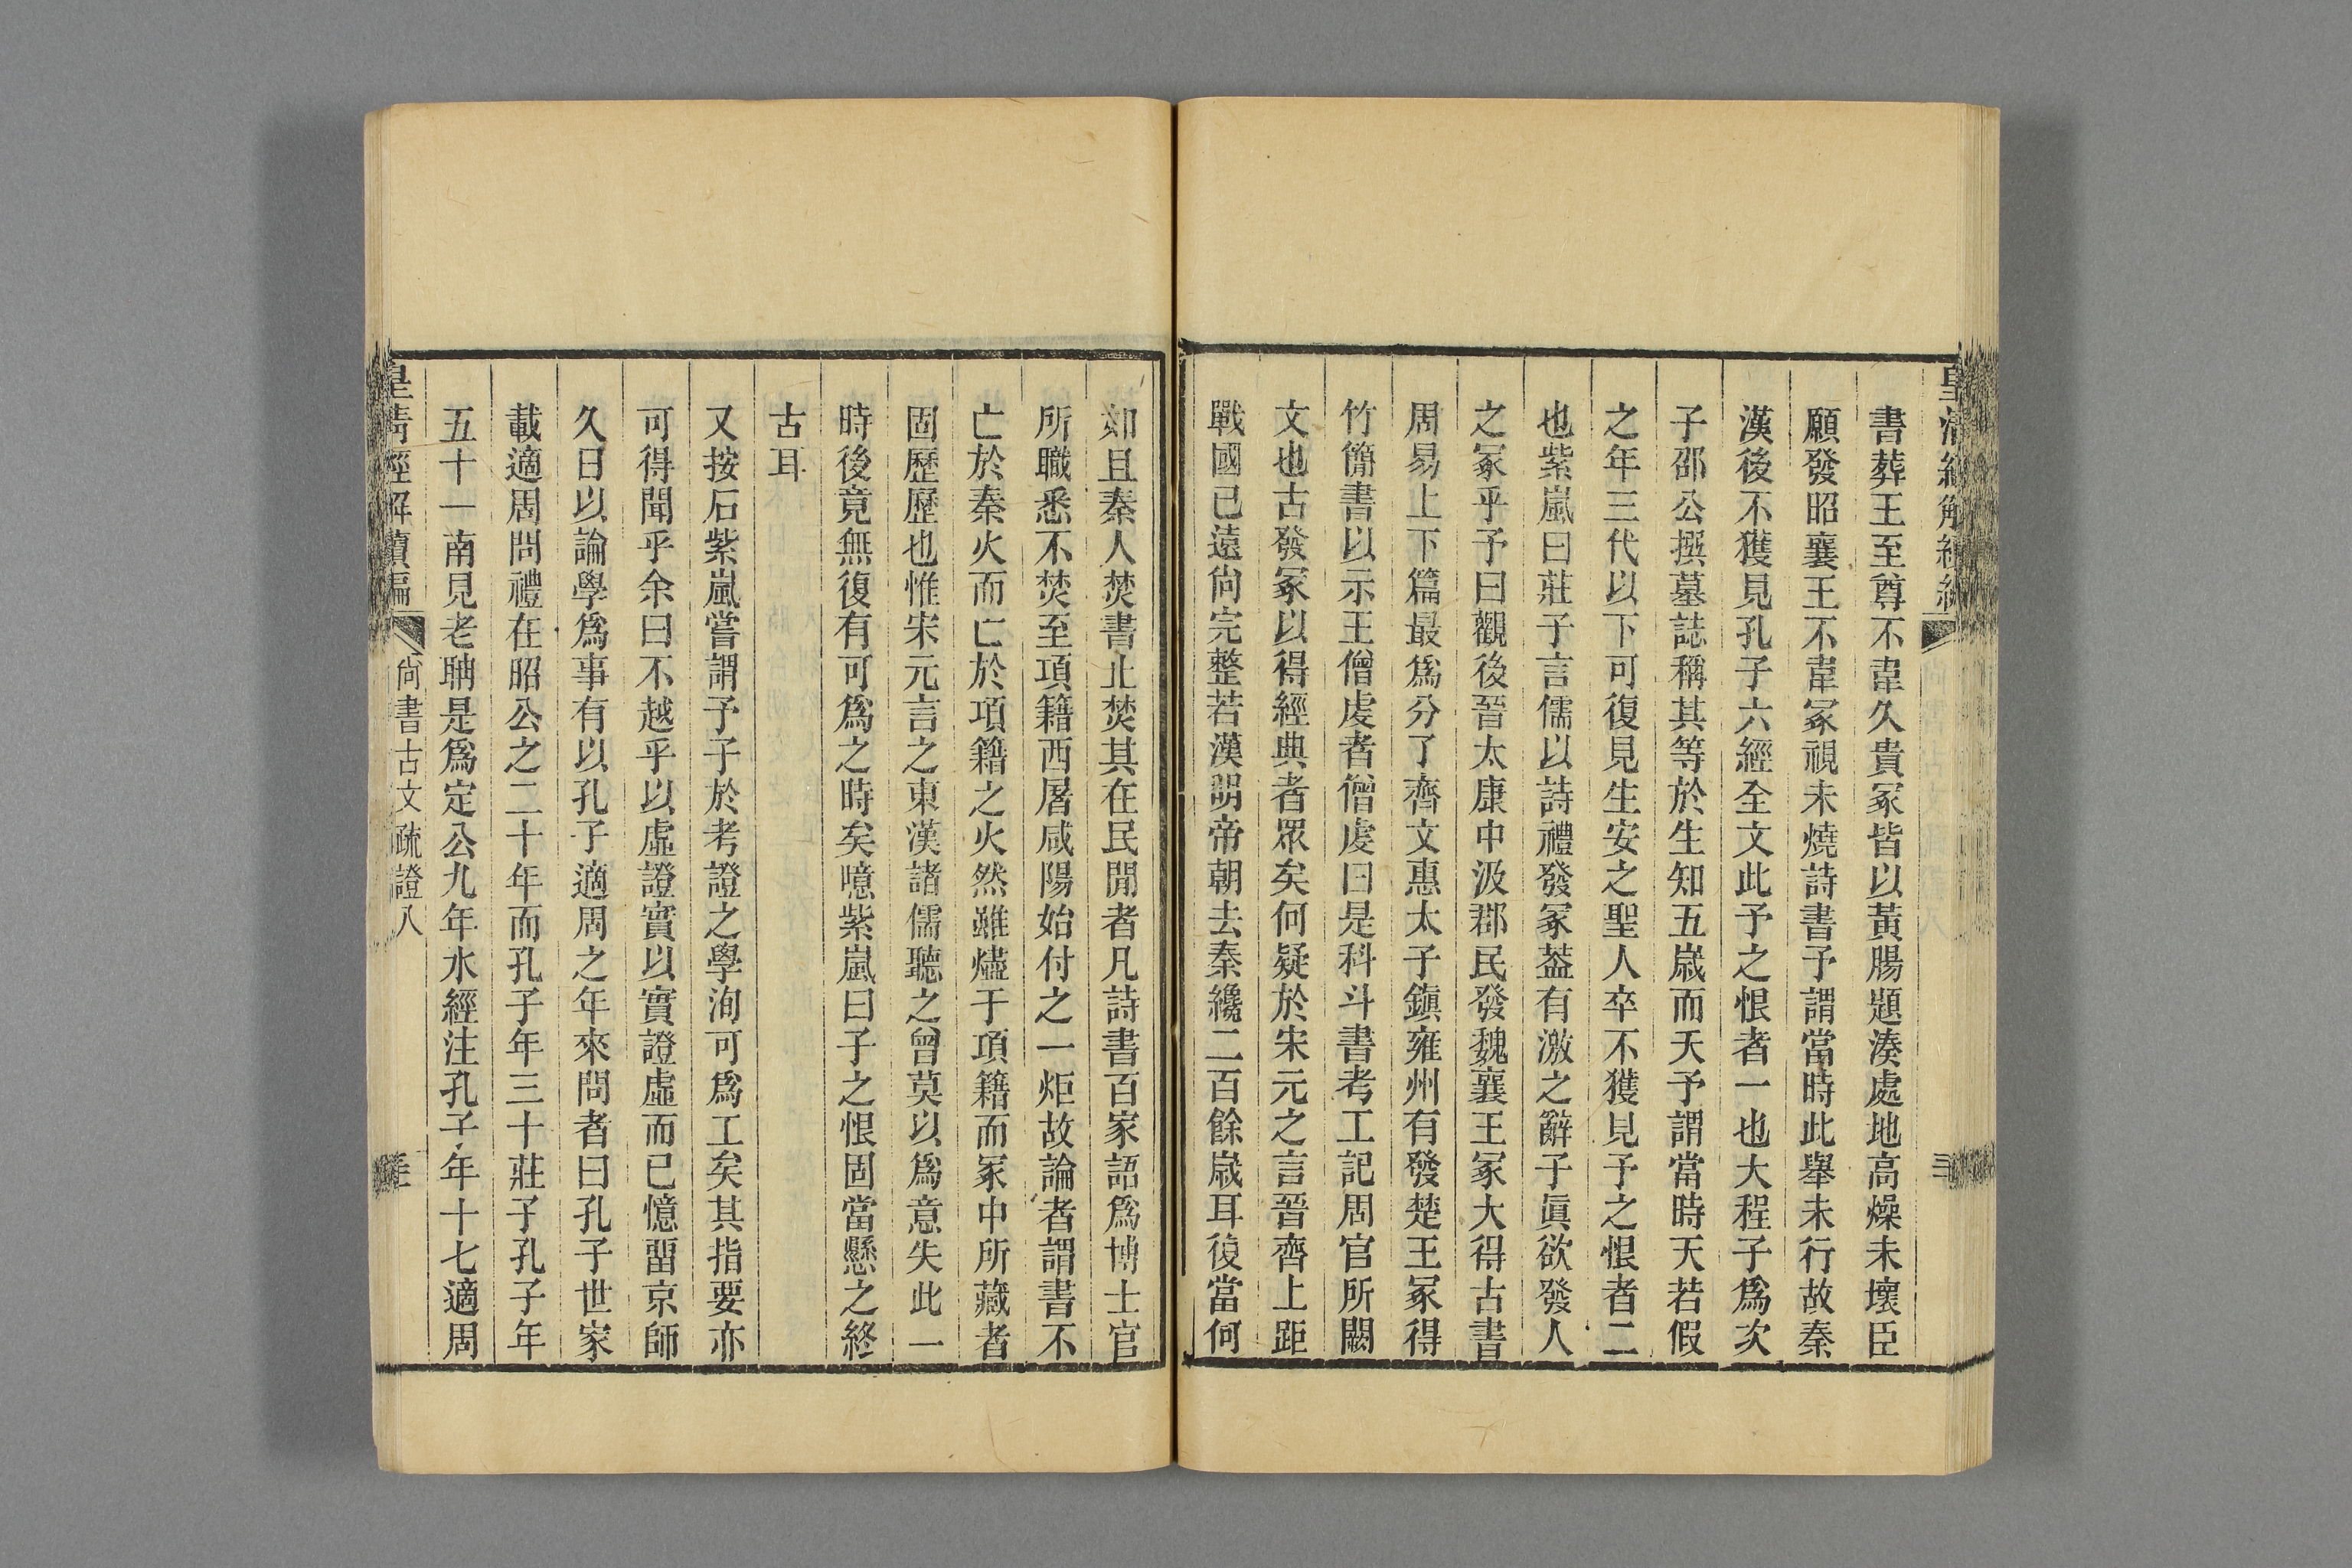 書葬王至尊不韋久貴冢皆以黃腸題湊處地高燥未壞臣
願發昭襄王不韋冢視未燒詩書予謂當時此舉未行故秦
漢後不獲見孔子六經全文此予之恨者一也大程子爲次
子邵公撰墓誌稱其等於生知五歲而夭予謂當時天若假
之年三代以下可復見生安之聖人卒不獲見予之恨者二
也紫嵐曰莊子言儒以詩禮發冢葢有激之辭子眞欲發人
之冢乎予曰觀後晉太康中汲郡民發魏襄王冢大得古書
周易上下篇最爲分了齊文惠太子鎭雍州有發楚王冢得
竹簡書以示王僧虔者僧虔曰是科斗書考工記周官所闕
文也古發冢以得經典者眾矣何疑於宋元之言晉齊上距
戰國已遠尙完整若漢明帝朝去秦纔二百餘歲耳復當何
如且秦人焚書止焚其在民閒者凡詩書百家語爲博士官
所職悉不焚至項籍西屠咸陽始付之一炬故論者謂書不
亡於秦火而亡於項籍之火然雖燼于項籍而冢中所藏者
固歷歷也惟宋元言之東漢諸儒聽之曾莫以爲意失此一
時後竟無復有可爲之時矣噫紫嵐曰子之恨固當懸之終
古耳
又按石紫嵐嘗謂予子於考證之學洵可爲工矣其指要亦
可得聞乎余曰不越乎以虛證實以實證虛而已憶畱京師
久日以論學爲事有以孔子適周之年來問者曰孔子世家
載適周問禮在昭公之二十年而孔子年三十莊子孔子年
五十一南見老聃是爲定公九年水經注孔子年十七適周
皇清經解續編
尙書古文疏證八